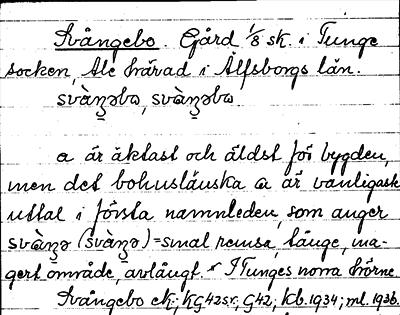 Svångebo. Gård 1/8 sk. i Tunge
socken, Ale härad i Älfsborgs län.
a är äktast och äldst för bygden,
men det bohuslänska ꭤ är vanligast
uttal i första namnleden, som anger
=smal remsa, länge, ma-
gert område, avlångt. I Tunges norra hörne.
Svångebo ek; KG42sr, G42; kb. 1934; ml. 1936.